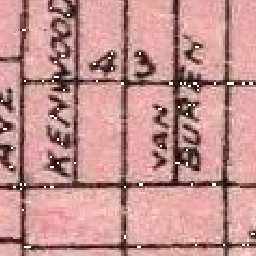 AVE
KENWOOD
43
VAN
BUREN